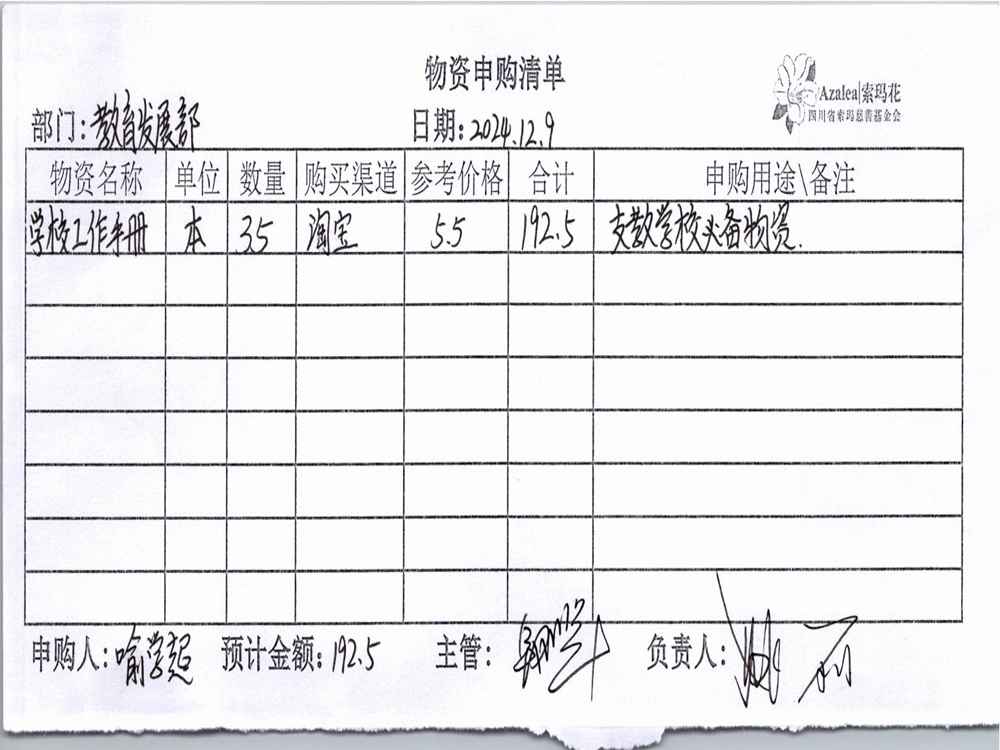 物资申购清单
Azalea|索玛花
四川省索玛慈善基金会
部门:教育发展部 日期:2024.12.9
物资名称 单位 数量 购买渠道 参考价格 合计 申购用途\备注
学校工作手册 本 35 淘宝 5.5 192.5 支教学校必备物资.
申购人:喻学超 预计金额:192.5 主管: 负责人: